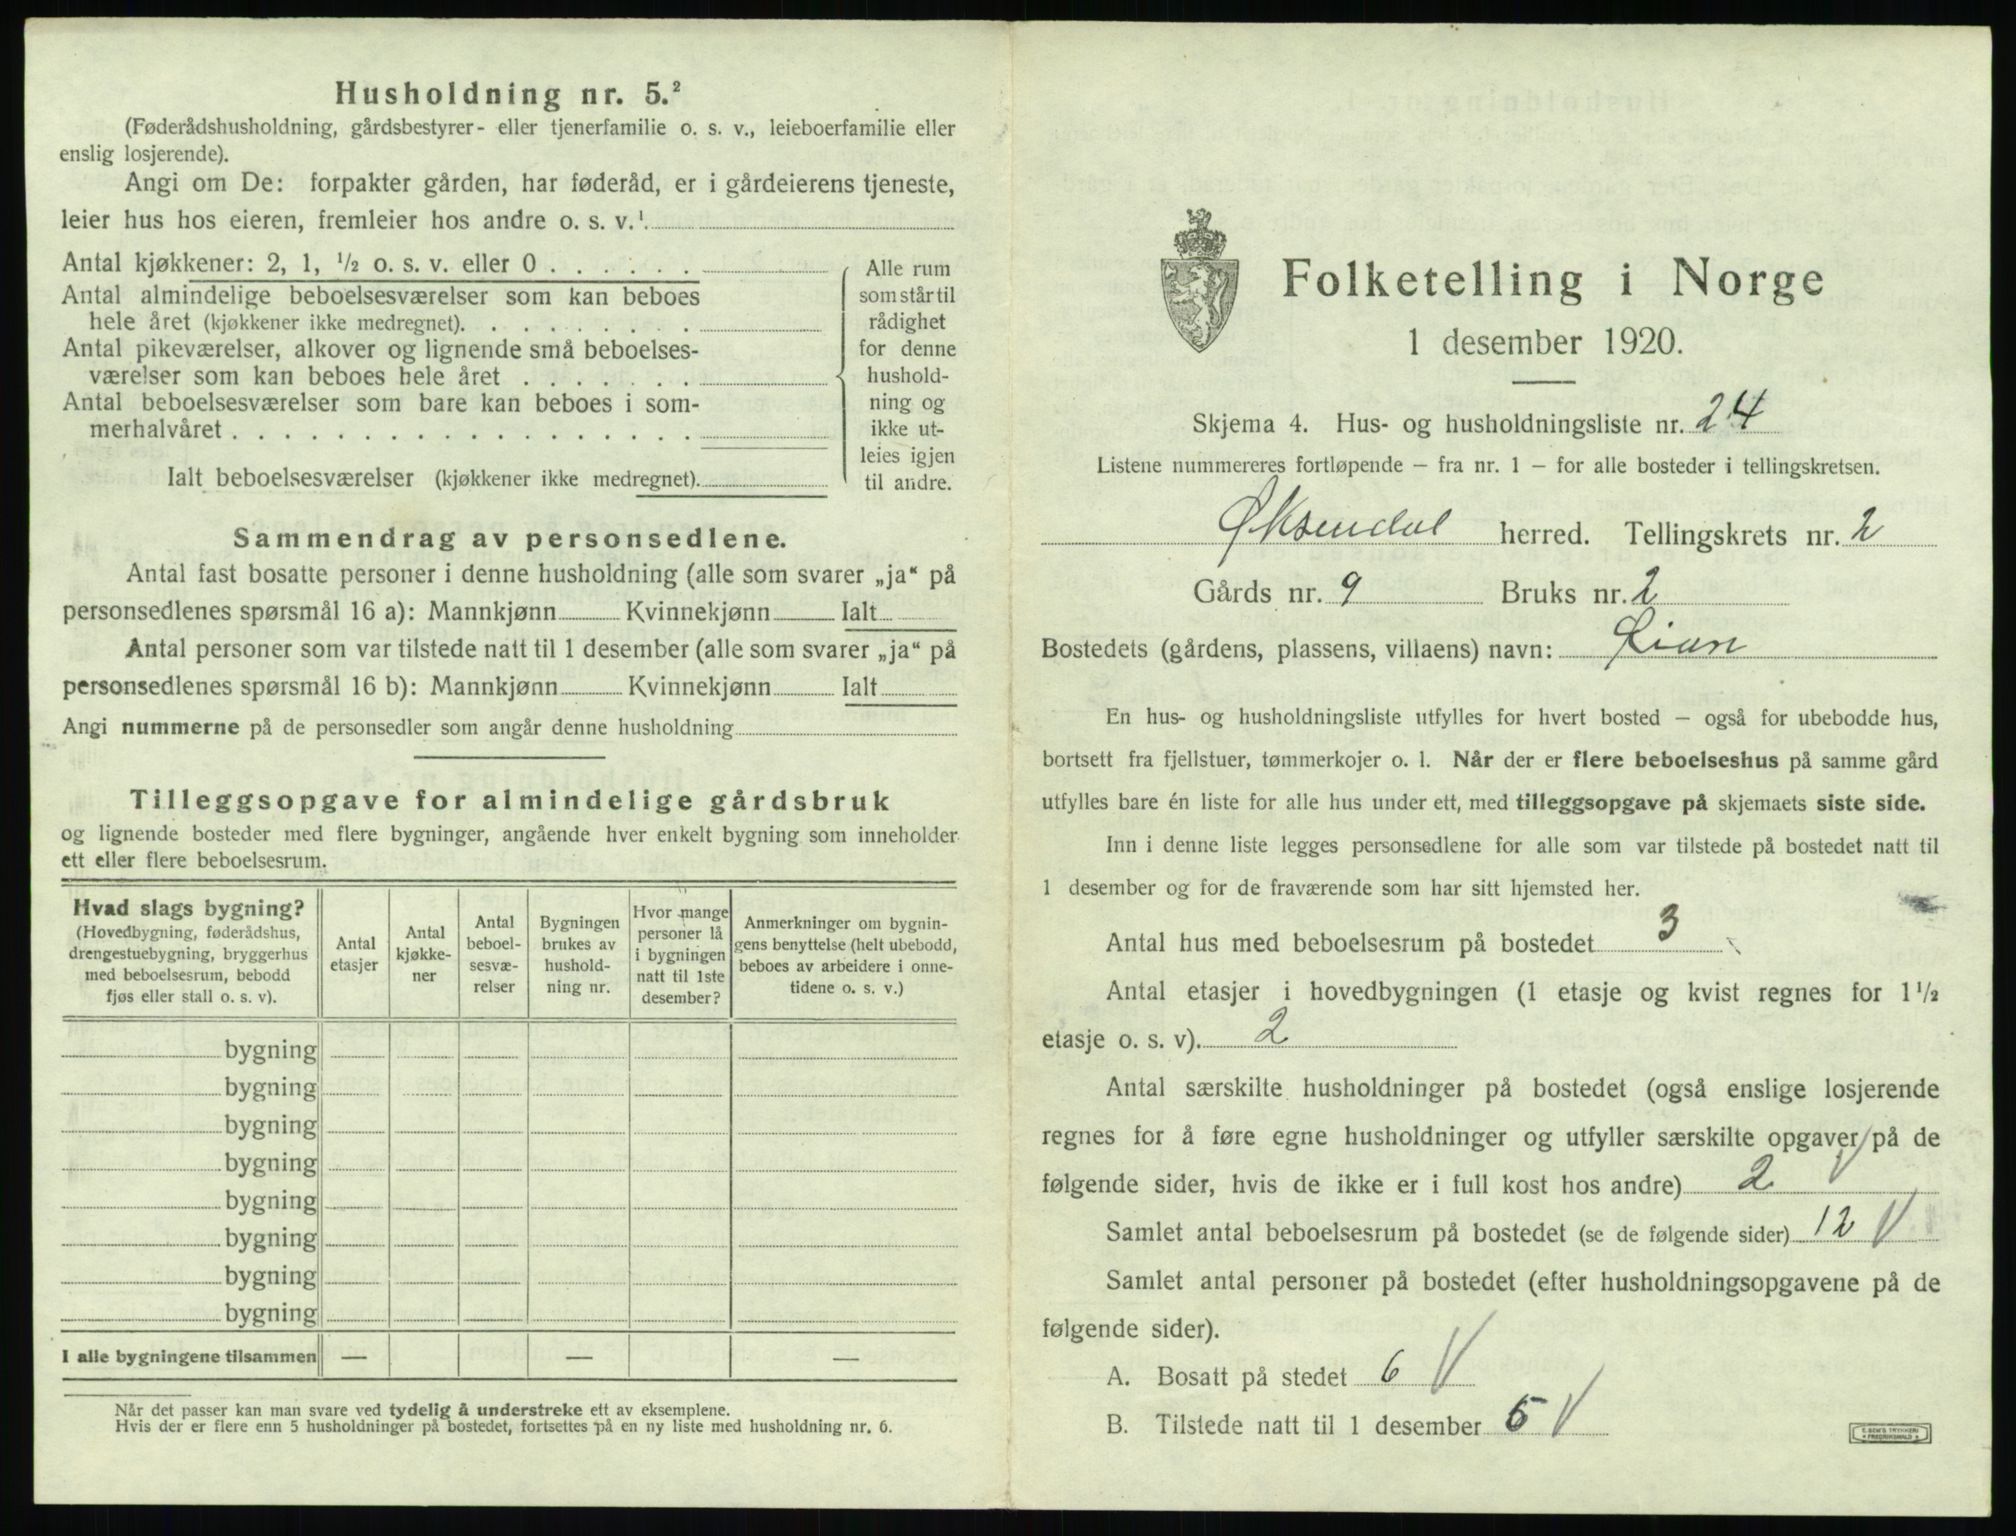 Husholdning nr. 5.²
(Føderådshusholdning, gårdsbestyrer- eller tjenerfamilie o. s. v., leieboerfamilie eller
enslig losjerende).
Angi om De: forpakter gården, har føderåd, er i gårdeierens tjeneste,
leier hus hos eieren, fremleier hos andre o. s. v.¹
Antal kjøkkener: 2, 1, ½ o. s. v. eller 0 . . . . . .
Antal almindelige beboelsesværelser som kan beboes
hele året (kjøkkener ikke medregnet). . . . . . . . .
Antal pikeværelser, alkover og lignende små beboelses-
værelser som kan beboes hele året . . . . . . .
Antal beboelsesværelser som bare kan beboes i som-
merhalvåret . . . . . . . . . . . . . . . . . .
Ialt beboelsesværelser (kjøkkener ikke medregnet).
Alle rum
som står til
rådighet
for denne
hushold-
ning og
ikke ut-
leies igjen
til andre.
Sammendrag av personsedlene.
Antal fast bosatte personer i denne husholdning (alle som svarer „ja“ på
personsedlenes spørsmål 16 a): Mannkjønn Kvinnekjønn Ialt
Antal personer som var tilstede natt til 1 desember (alle som svarer „ja“ på
personsedlenes spørsmål 16 b): Mannkjønn Kvinnekjønn Ialt
Angi nummerne på de personsedler som angår denne husholdning
Tilleggsopgave for almindelige gårdsbruk
og lignende bosteder med flere bygninger, angående hver enkelt bygning som inneholder
ett eller flere beboelsesrum.
Hvad slags bygning?
(Hovedbygning, føderådshus,
drengestuebygning, bryggerhus
med beboelsesrum, bebodd
fjøs eller stall o. s. v).
Antal
etasjer
Antal
kjøkke-
ner
Antal
beboel-
sesvæ-
relser
Bygningen
brukes av
hushold-
ning nr.
Hvor mange
personer lå
i bygningen
natt til 1ste
desember?
Anmerkninger om bygnin-
gens benyttelse (helt ubebodd,
beboes av arbeidere i onne-
tidene o. s. v.)
bygning
bygning
bygning
bygning
bygning
bygning
bygning
bygning
I alle bygningene tilsammen — — —
Når det passer kan man svare ved tydelig å understreke ett av eksemplene.
Hvis der er flere enn 5 husholdninger på bostedet, fortsettes på en ny liste med husholdning nr. 6.
Folketelling i Norge
1 desember 1920.
Skjema 4. Hus- og husholdningsliste nr. 24
Listene nummereres fortløpende – fra nr. 1 – for alle bosteder i tellingskretsen.
Øksendal herred. Tellingskrets nr. 2
Gårds nr. 9 Bruks nr. 2
Bostedets (gårdens, plassens, villaens) navn:
En hus- og husholdningsliste utfylles for hvert bosted – også for ubebodde hus,
bortsett fra fjellstuer, tømmerkojer o. l. Når der er flere beboelseshus på samme gård
utfylles bare én liste for alle hus under ett, med tilleggsopgave på skjemaets siste side.
Inn i denne liste legges personsedlene for alle som var tilstede på bostedet natt til
1 desember og for de fraværende som har sitt hjemsted her.
Antal hus med beboelsesrum på bostedet 3
Antal etasjer i hovedbygningen (1 etasje og kvist regnes for 1½
etasje o. s. v). 2
Antal særskilte husholdninger på bostedet (også enslige losjerende
regnes for å føre egne husholdninger og utfyller særskilte opgaver på de
følgende sider, hvis de ikke er i full kost hos andre) 2
Samlet antal beboelsesrum på bostedet (se de følgende sider) 12
Samlet antal personer på bostedet (efter husholdningsopgavene på de
følgende sider).
A. Bosatt på stedet 6
B. Tilstede natt til 1 desember 5